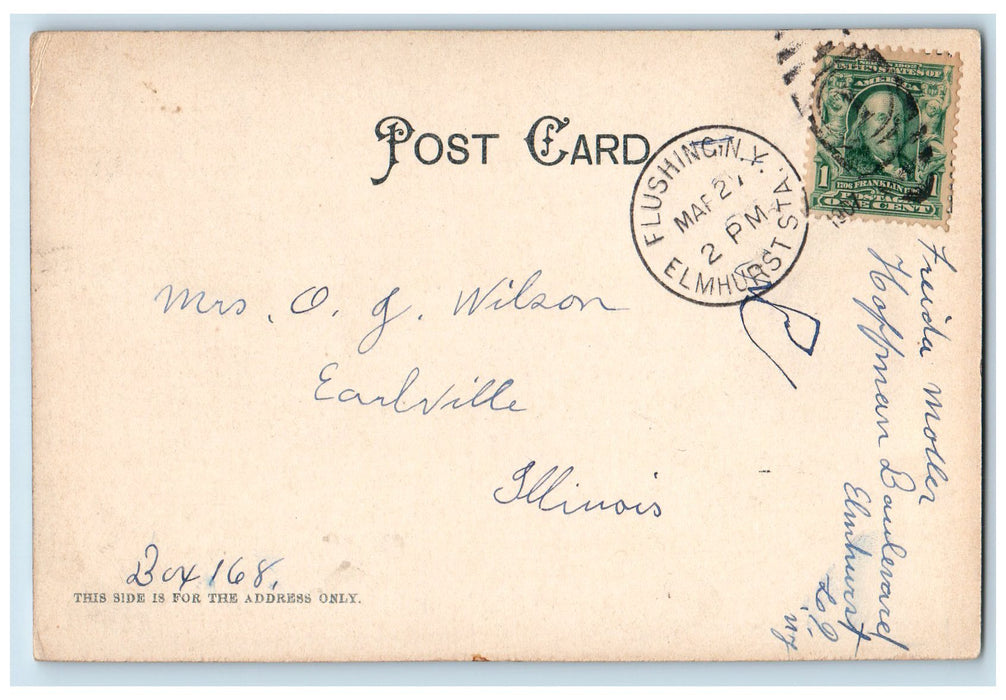 POST CARD
FLUSHING, N.Y.
MAR 27
2 PM
ELMHURST STA.
SERIES 1902
UNITED STATES OF
AMERICA
1 1706 FRANKLIN 1
POSTAGE
ONE CENT
Mrs. O. J. Wilson
Earlville
Illinois
Box 168.
THIS SIDE IS FOR THE ADDRESS ONLY.
Frieda Moller
Hoffman Boulevard
Elmhurst
L.I.
NY